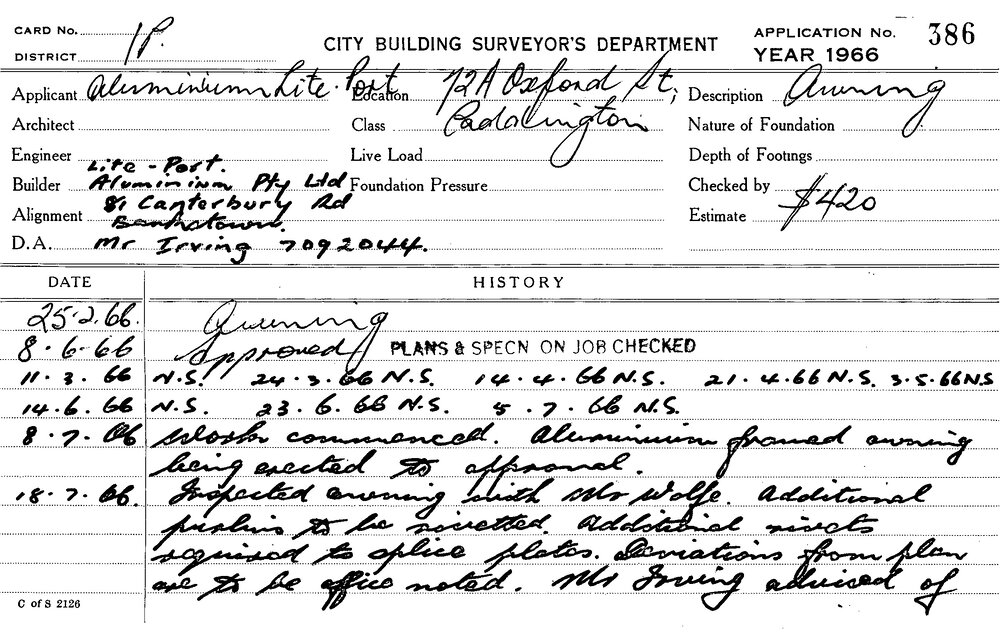 CARD No. 1P. CITY BUILDING SURVEYOR'S DEPARTMENT APPLICATION No. 386
DISTRICT YEAR 1966
Applicant Aluminium Lite-Port Location 72A Oxford St, Description Awning
Architect Class Paddington Nature of Foundation
Engineer Lite-Port. Live Load Depth of Footings
Builder Aluminium Pty Ltd Foundation Pressure Checked by
Alignment 81 Canterbury Rd Bankstown. Estimate $420
D.A. Mr Irving 7092044.
DATE HISTORY
25.2.66. Awning
8.6.66 Approved PLANS & SPECN ON JOB CHECKED
11.3.66 N.S. 24.3.66 N.S. 14.4.66 N.S. 21.4.66 N.S. 3.5.66 N.S
14.6.66 N.S. 23.6.66 N.S. 5.7.66 N.S.
8.7.66 Work commenced. Aluminium framed awning
being erected to approval.
18.7.66. Inspected awning with Mr Wolfe. Additional
purlins to be rivetted. Additional rivets
required to splice plates. Deviations from plan
are to be office noted. Mr Irving advised of
C of S 2126